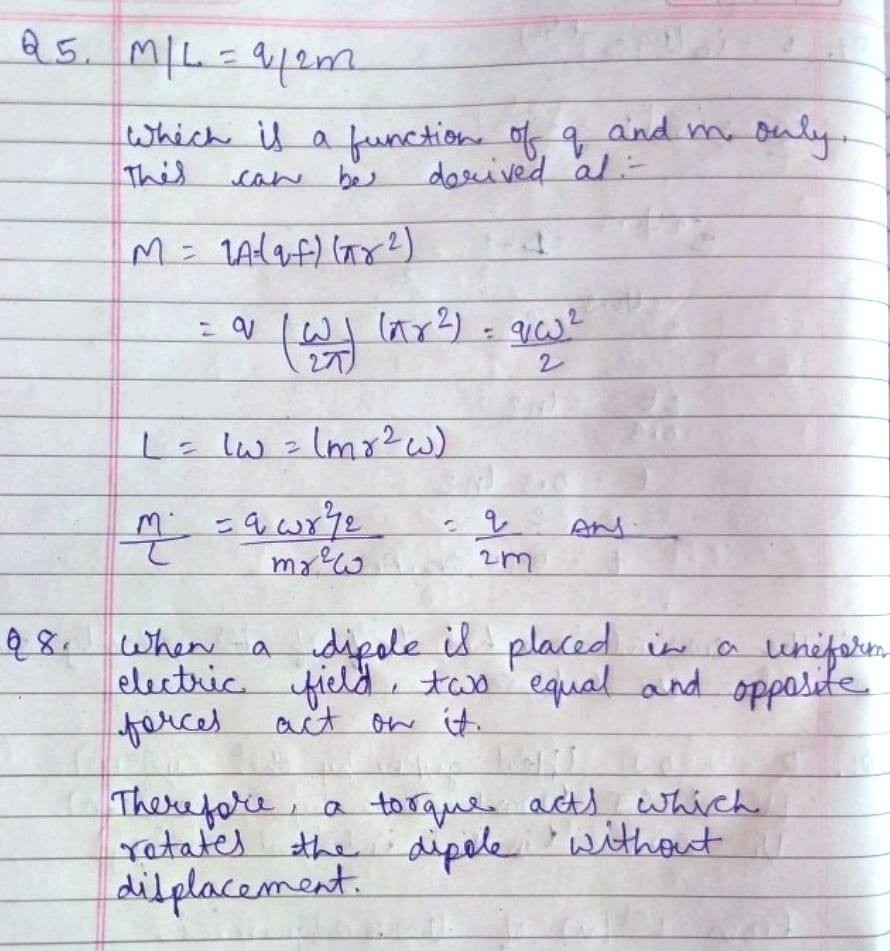 Q 5. M/L = q/2m
Which is a function of q and m only.
This can be derived as :-
M = IA=(qf)(πr²)
= q (ω/2π) (πr²) = qω²/2
L = Iω = (mr²ω)
M/L = qωr²/2 / mr²ω = q/2m Ans.
Q 8. When a dipole is placed in a uniform
electric field, two equal and opposite
forces act on it.
Therefore, a torque acts which
rotates the dipole without
displacement.